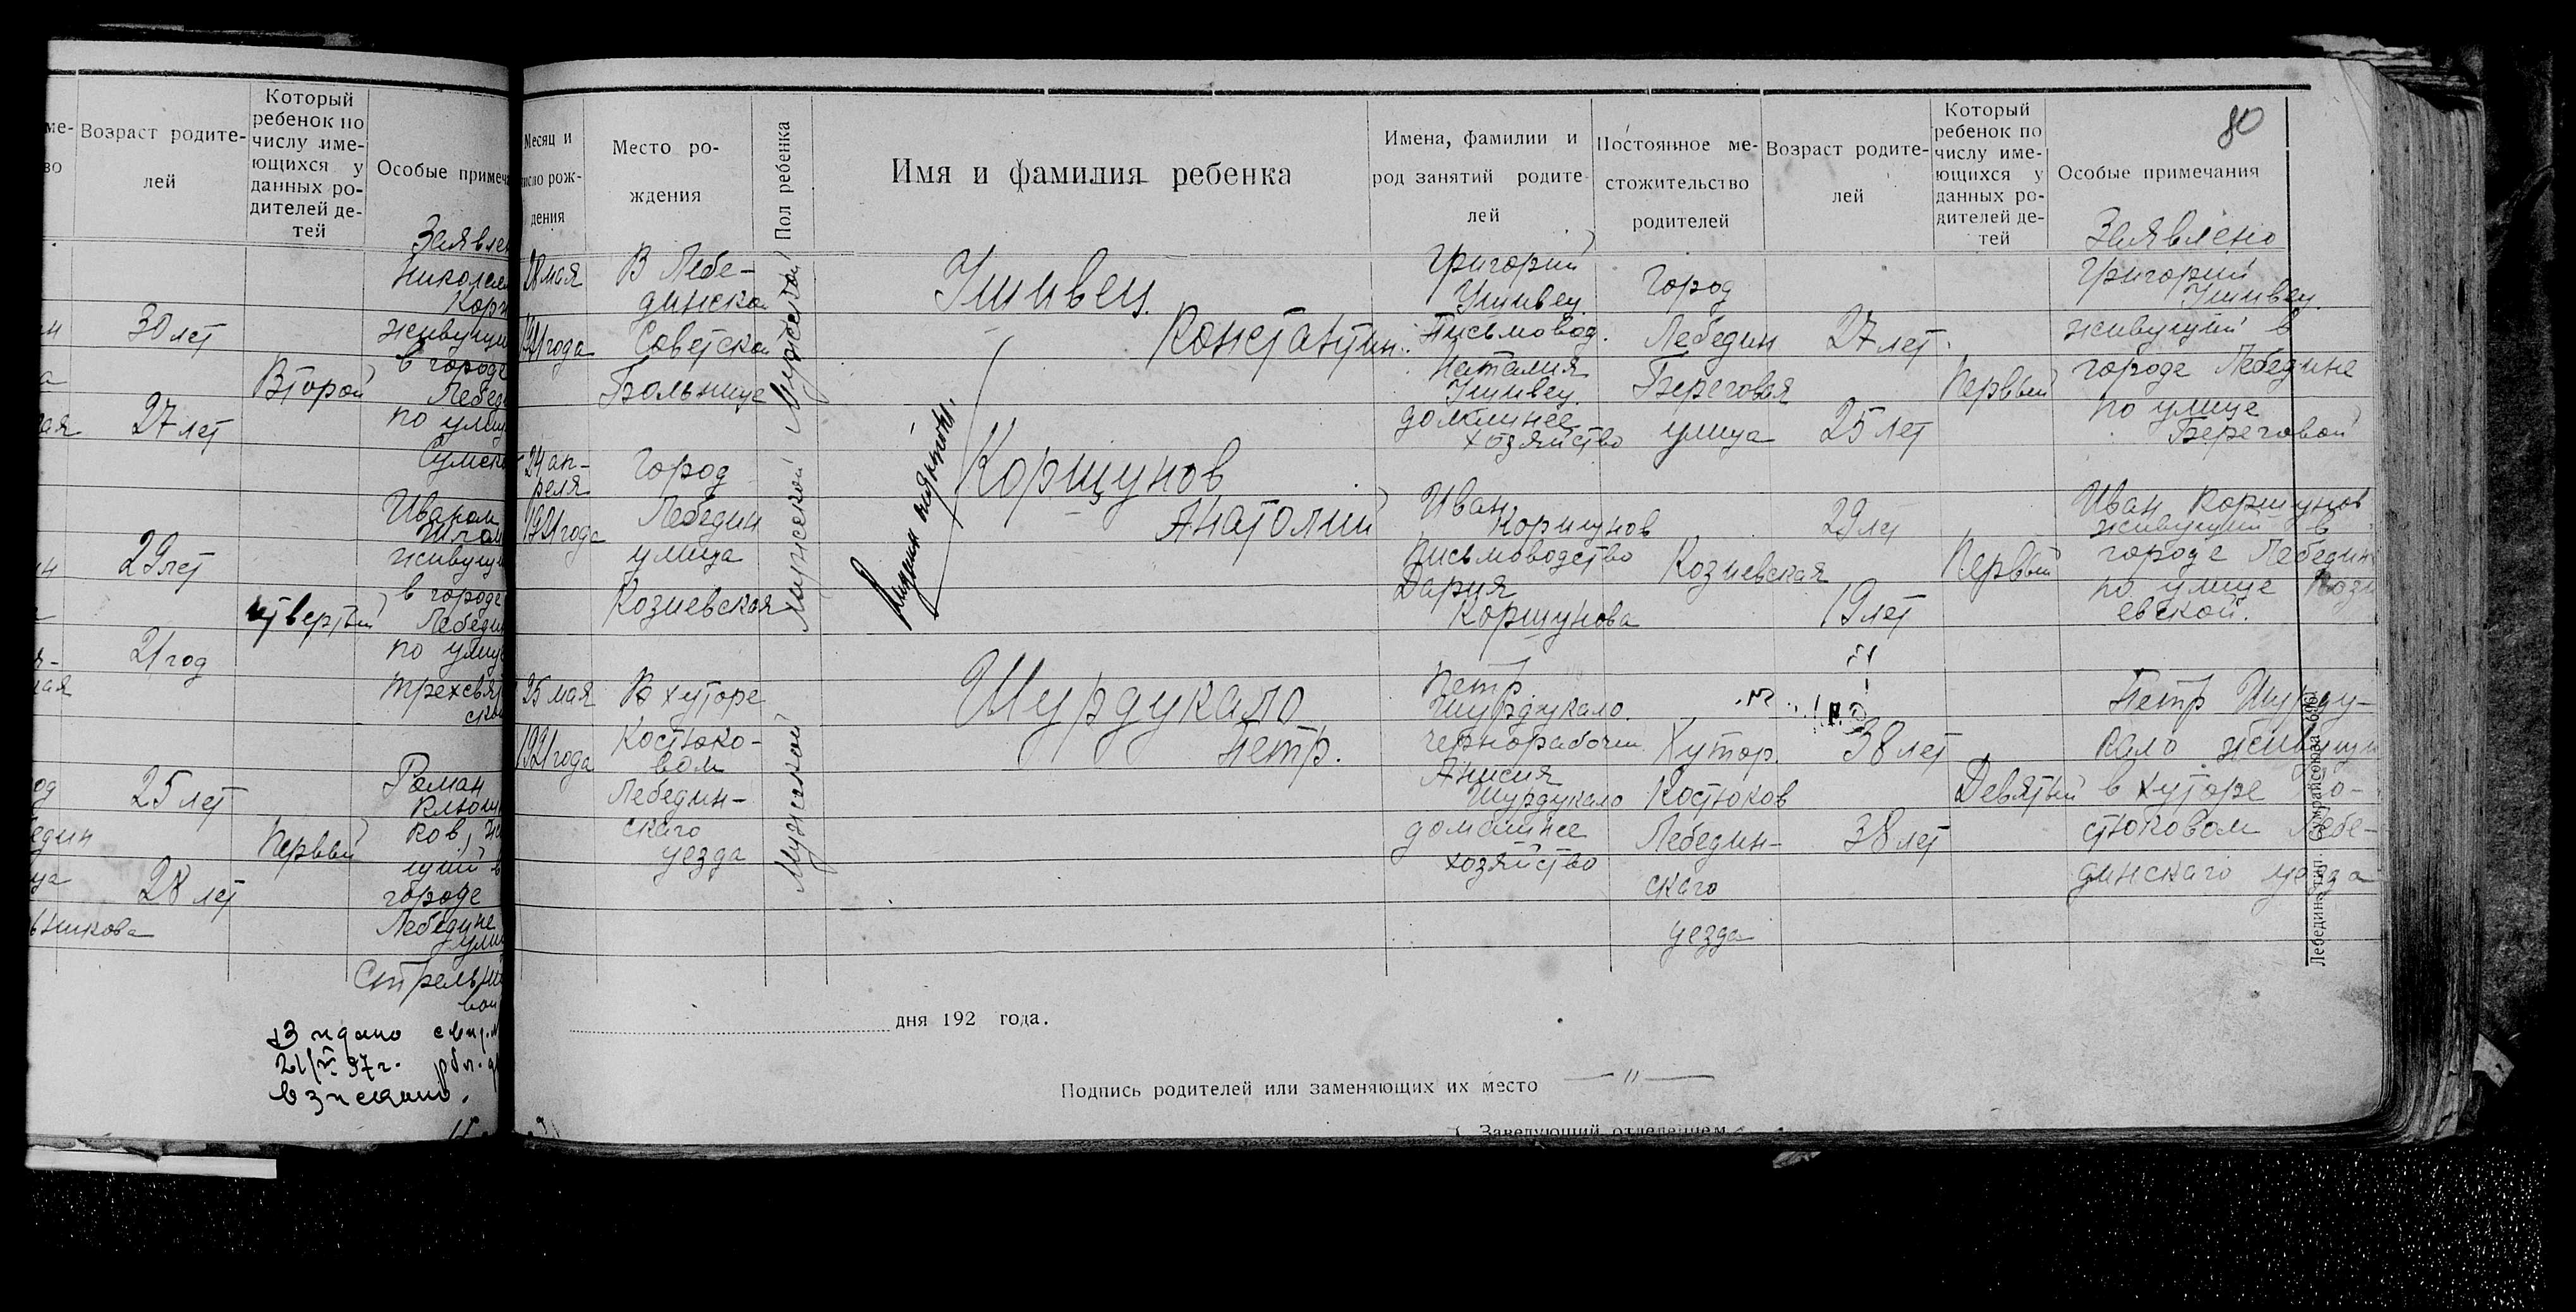 Возраст родите-
лей
Который
ребенок по
числу име-
ющихся у
данных ро-
дителей де-
тей
Особые примеча
Заявлен
30 лет
27 лет
Второй
живущи
в городе
Лебеди
по улиц
Сумско
29 лет
21 год
Иваном
живущи
в городе
Лебедин
по улиц
Трехсвят
ской
25 лет
28 лет
Первый
Роман
ков, жи
щий в
городе
Лебедине
улиц
Стрельни
вой
Месяц и
число рож-
дения
Место ро-
ждения
Пол ребенка
Имя и фамилия ребенка
Имена, фамилии и
род занятий родите
лей
Постоянное ме-
стожительство
родителей
Возраст родите-
лей
Который
ребенок по
числу име-
ющихся у
данных ро-
дителей де-
тей
Особые примечания
80
Заявлено
28 мая
1921 года
В Лебе-
динской
Советской
Больнице
Мужской
Ушивец
Константин
Григорий
Ушивец
Письмовод.
Наталия
Ушивец
домашнее
хозяйство
Город
Лебедин
Береговая
улица
27 лет
25 лет
Первый
Григорий
Ушивец
живущий в
городе Лебедине
по улице
Береговой
24 ап-
реля
1921 года
Город
Лебедин
улица
Козиевская
Мужской
Коршунов
Анатолий
Иван
Коршунов
письмоводство
Дария
Коршунова
Козиевская
29 лет
19 лет
Первый
Иван Коршунов
живущий в
городе Лебедин
по улице Кози
евской.
25 мая
1921 года
В хуторе
Костюко-
вом
Лебедин-
скаго
уезда
Мужской
Шурдукало
Петр.
Петр
Шурдукало
чернорабочий
Анисия
Шурдукало
домашнее
хозяйство
Хутор
Костюков
Лебедин-
скаго
уезда
38 лет
38 лет
Девятый
Петр Шурду-
кало живущи
в хуторе Ко-
стюковом Лебе-
динскаго уезда
дня 192 года.
Подпись родителей или заменяющих их место
Заведующий отделением